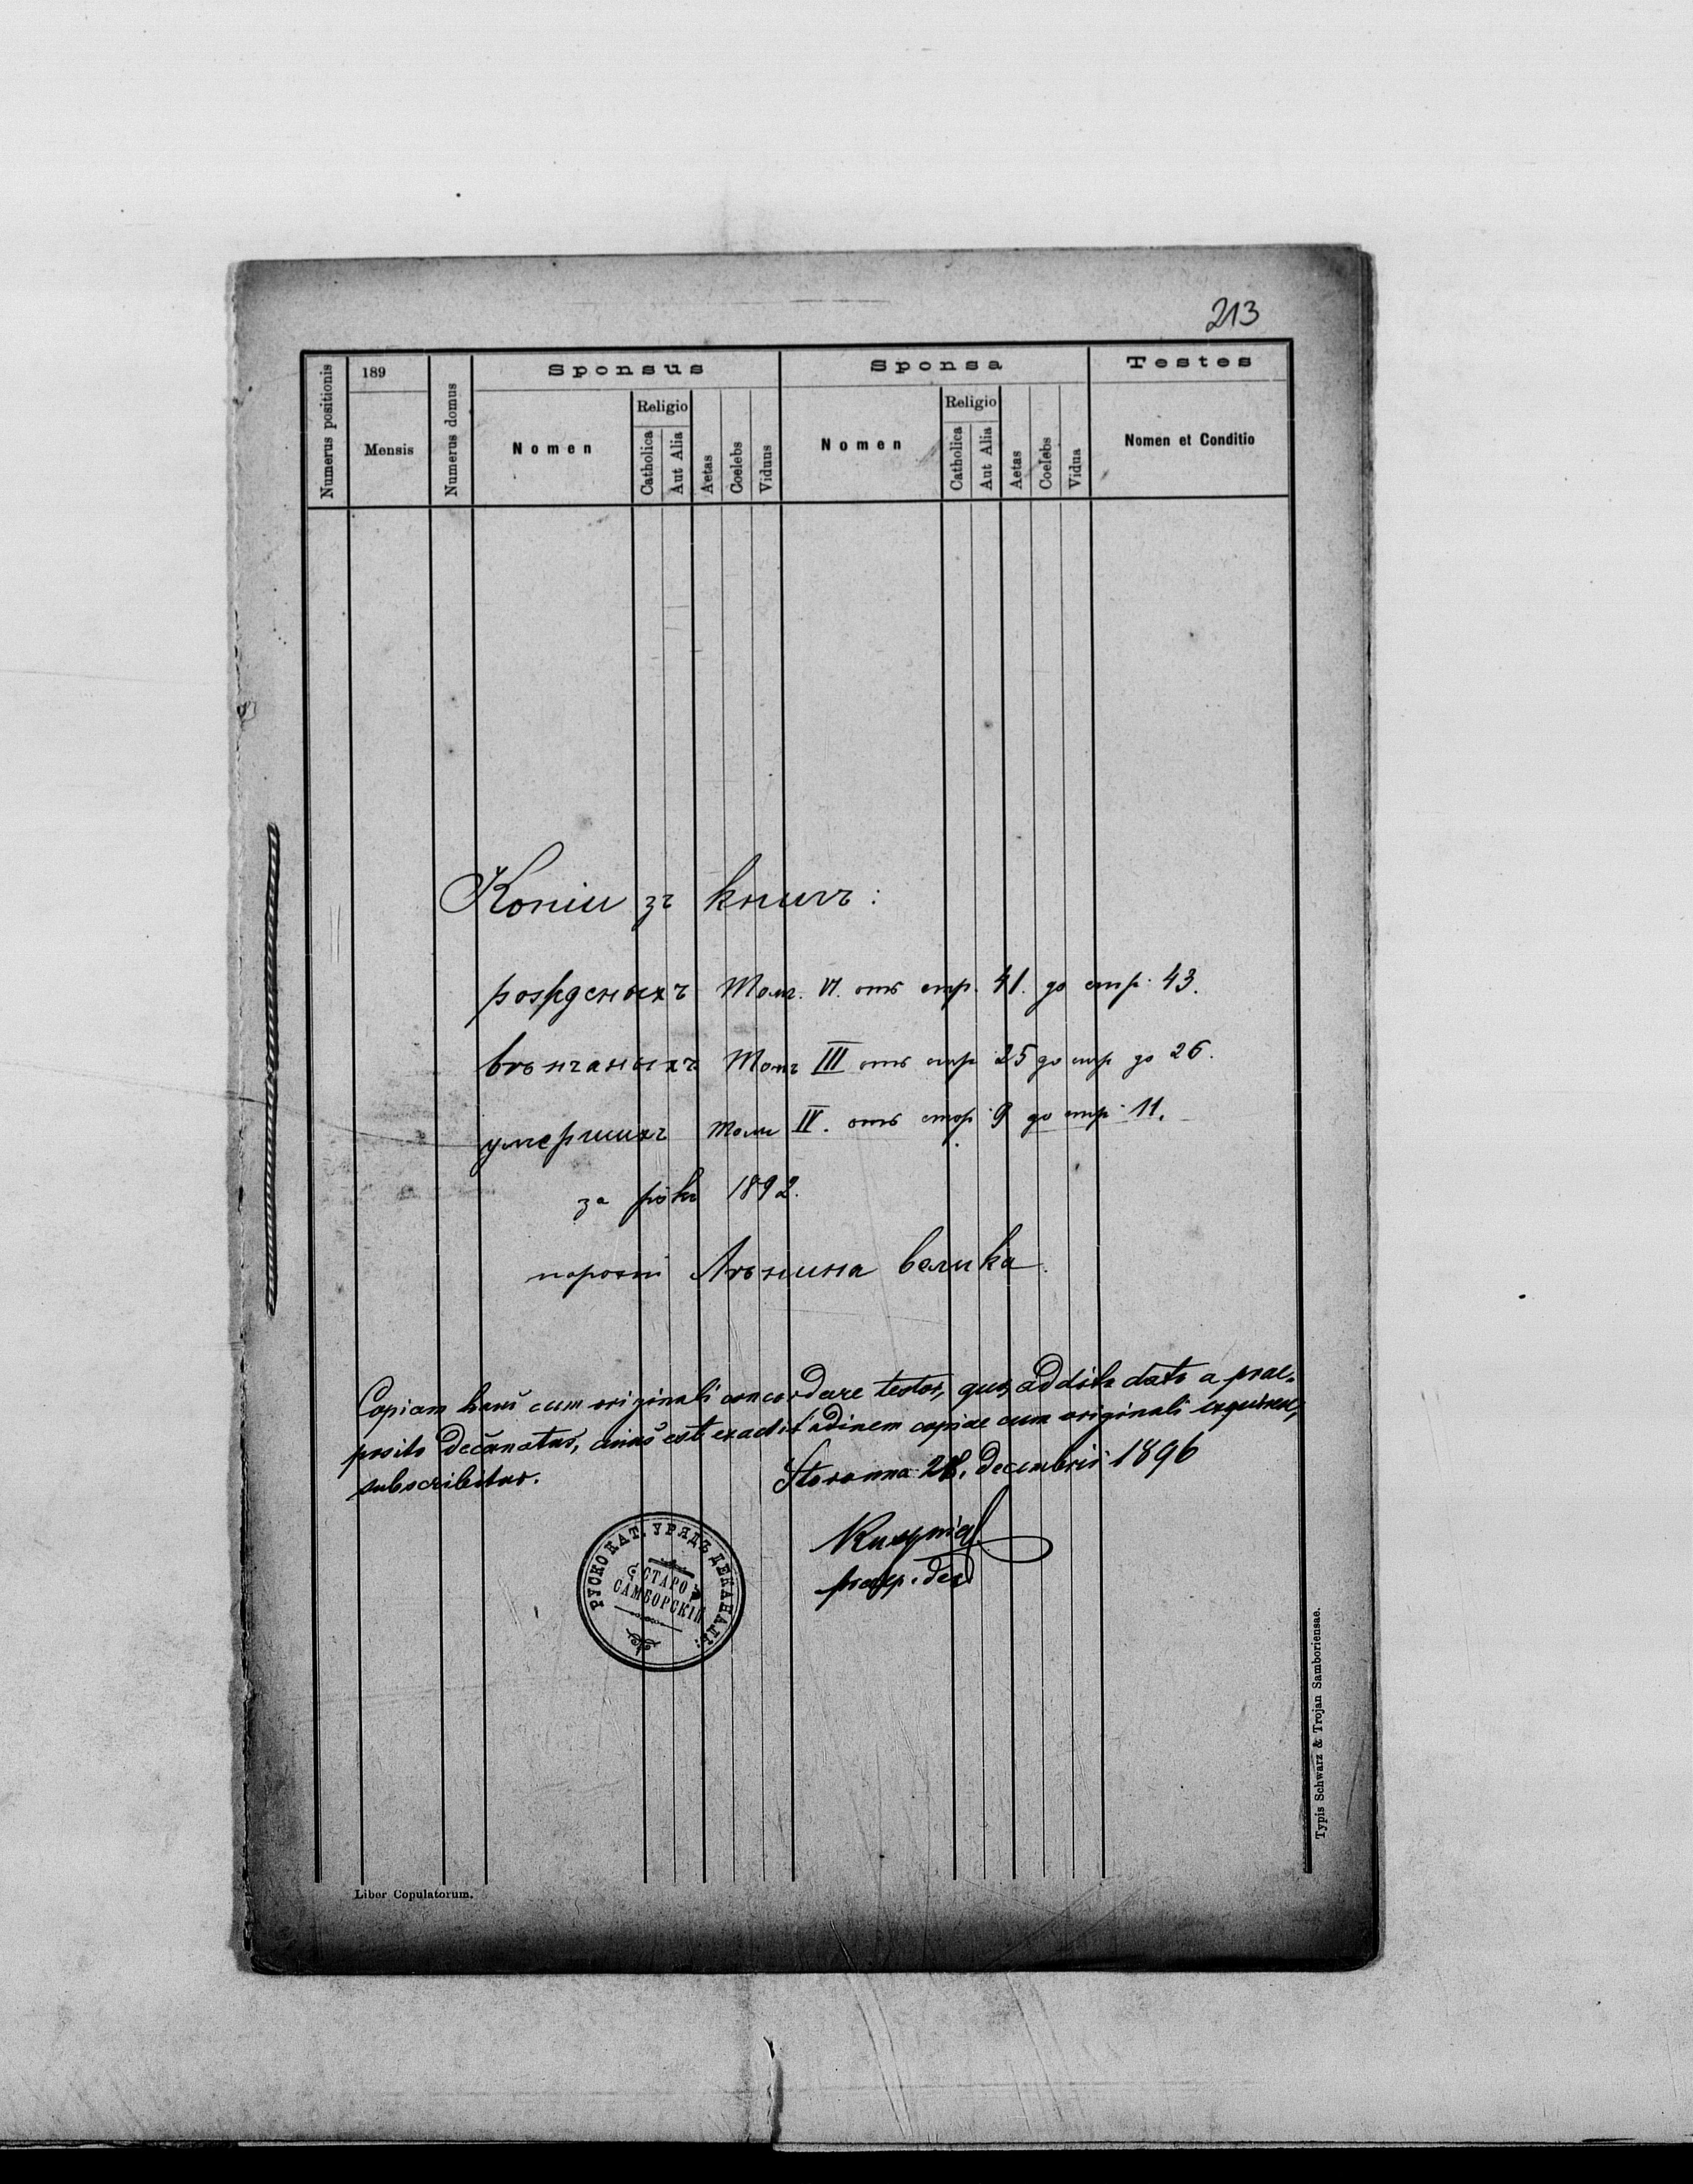 213
Numerus positionis
189
Mensis
Numerus domus
Sponsus
Nomen
Religio
Catholica
Aut Alia
Aetas
Coelebs
Viduus
Sponsa
Nomen
Religio
Catholica
Aut Alia
Aetas
Coelebs
Vidua
Testes
Nomen et Conditio
Копіи зъ книгъ:
рожденыхъ Томъ. VI. отъ стр. 41. до стр. 43.
вѣнчаныхъ Томъ III отъ стр 25 до стр до 26.
умершихъ Томъ IV. отъ стор. 9 до стр. 11.
за рôкъ 1892.
парохіи Лѣнина велика.
Copiam hanc cum originali concordare testor, quo addito dato a prae-
posito decanatus, cuius est exactitudinem copiae cum originali
subscribitur.
28. decembris 1896
РУСКО КАТ. УРЯДЪ ДЕКАНАЛЬ:
СТАРО
САМБОРСКІЙ
Liber Copulatorum.
Typis Schwarz & Trojan Samboriensae.